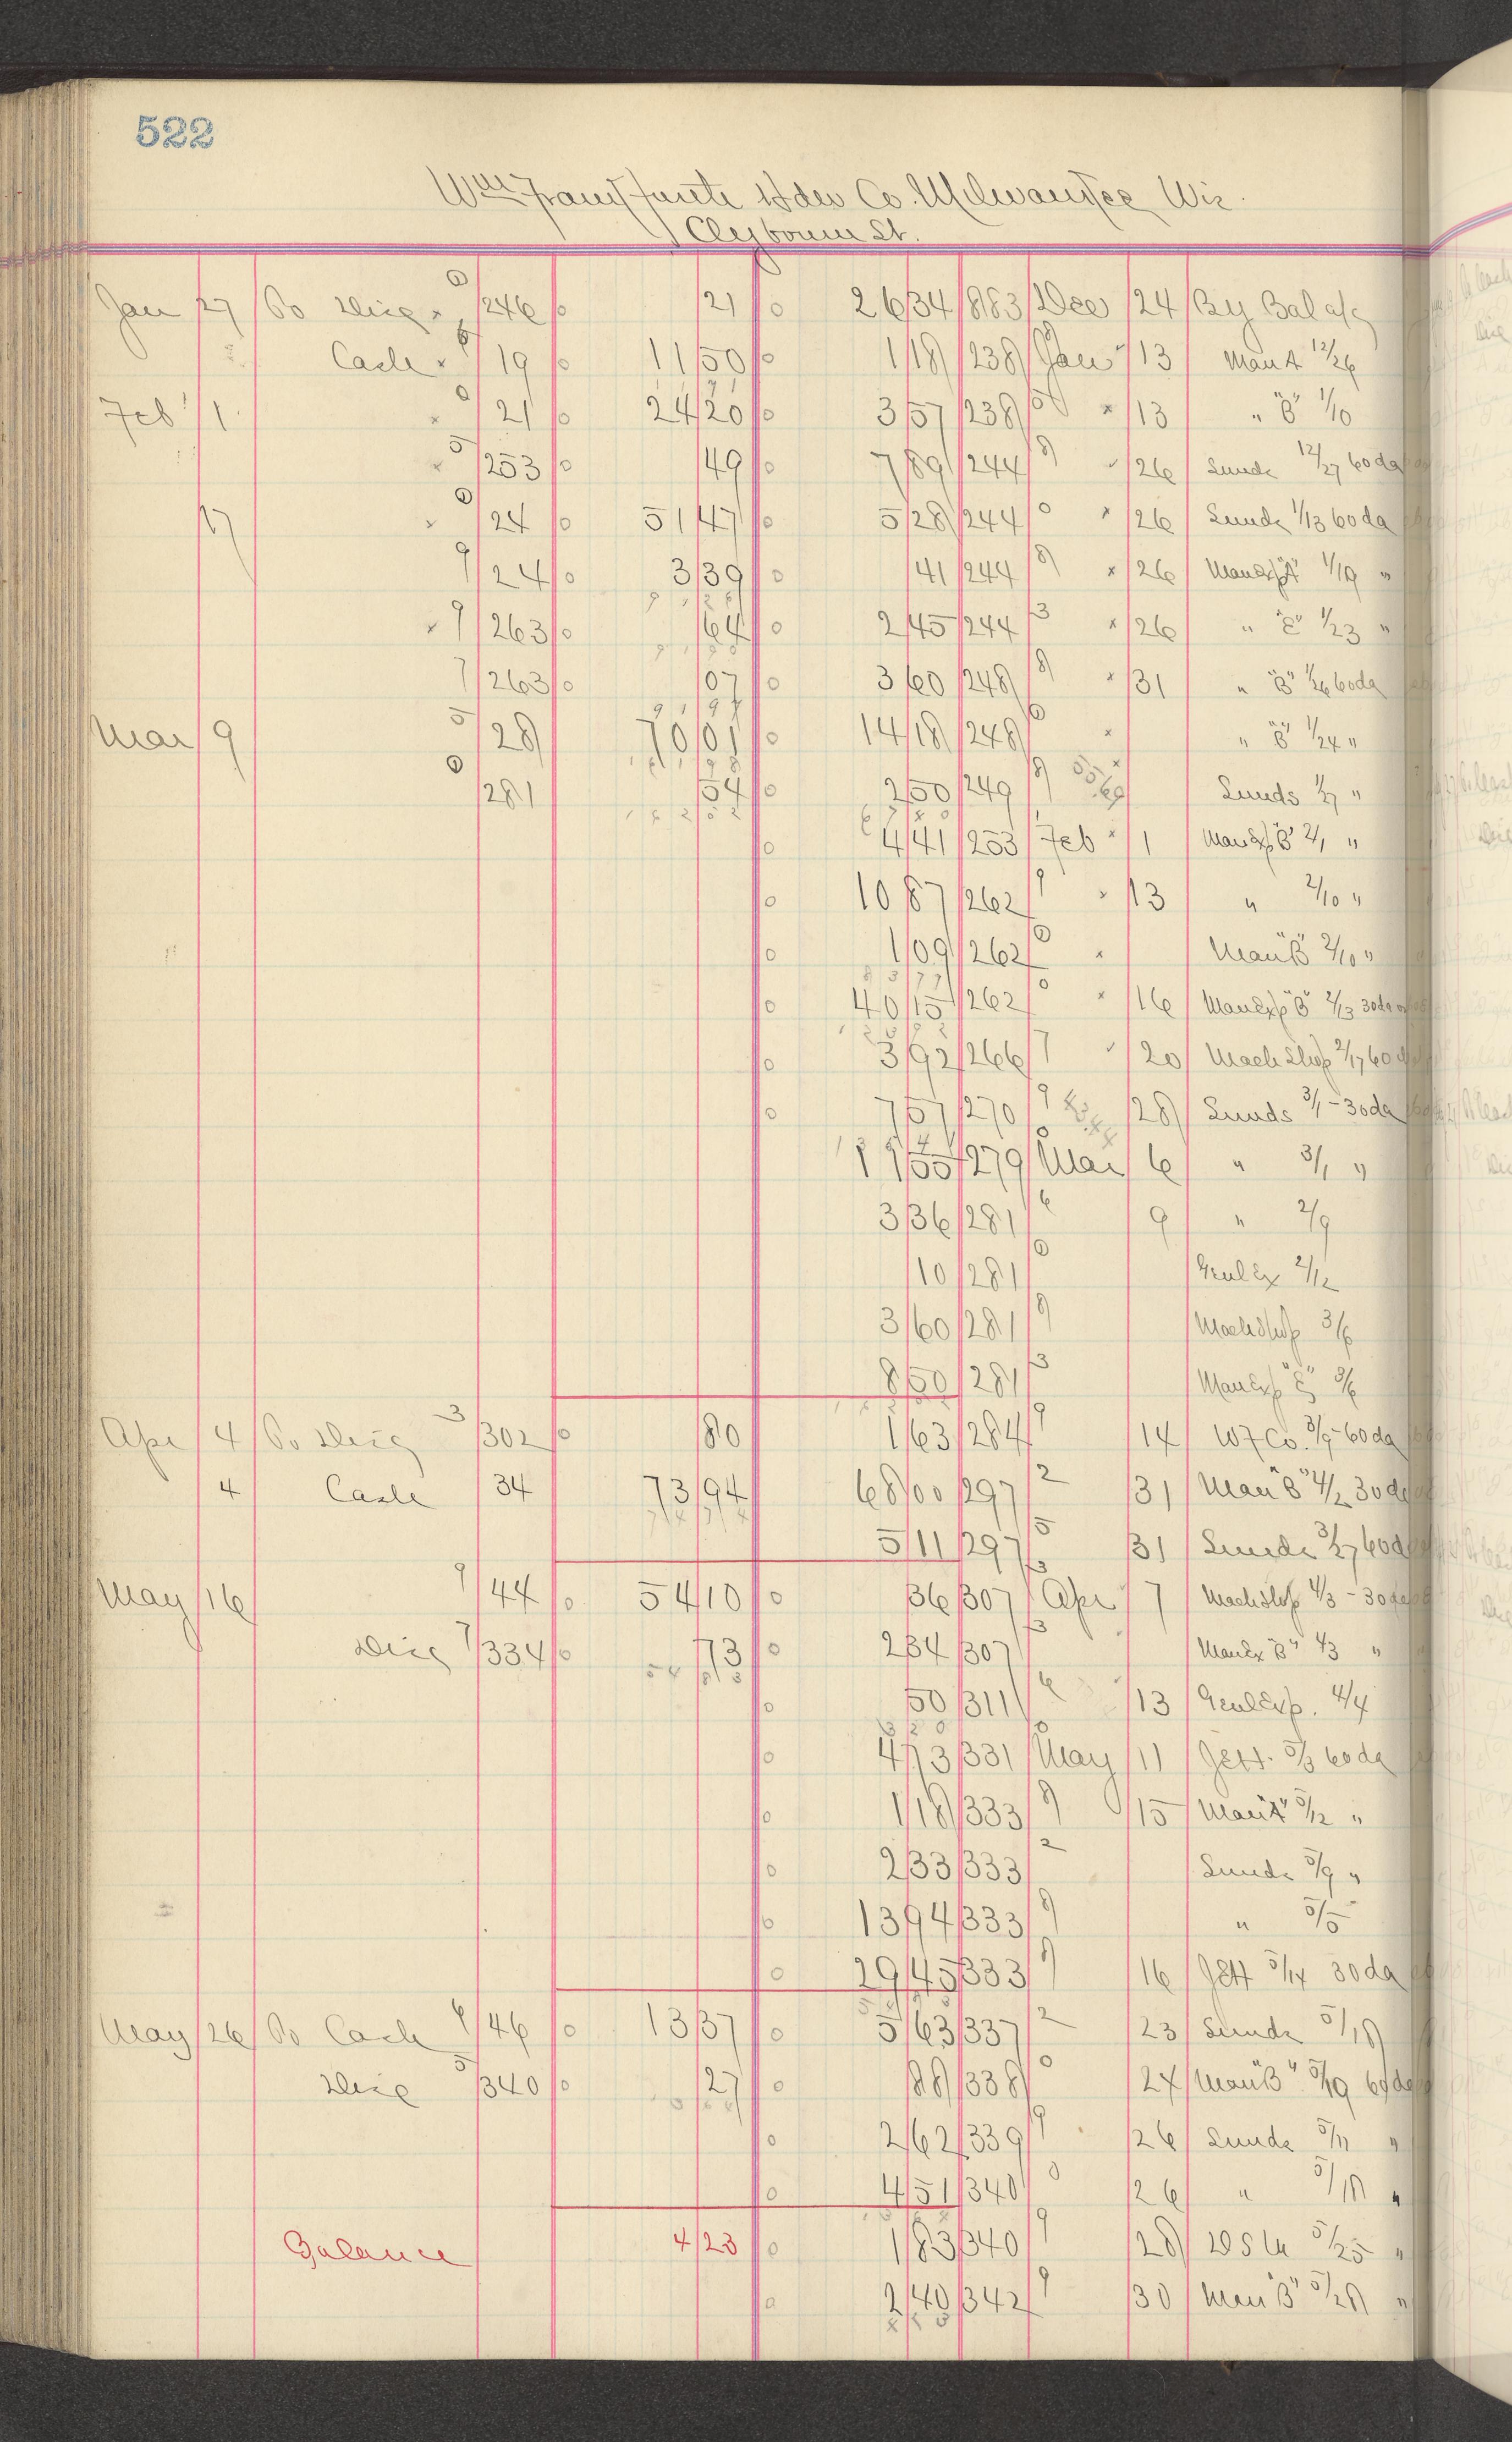 522
Wm Frankfurth Hdw Co. Milwaukee Wis.
Clybourn St.
Jan 27 To Disc 246 21 26 34 883 Dec 24 By Bal a/c
Cash 19 11 50 1 18 238 Jan 13 Man A 12/26
Feb 1 21 24 20 3 57 238 13 " "B" 1/10
253 49 7 89 244 26 Sunds 12/27 60da
17 24 51 47 5 28 244 26 Sunds 1/13 60da
24 3 39 41 244 26 ManExp "A" 1/19 "
263 64 2 45 244 26 " "E" 1/23 "
263 07 3 60 248 31 " "B" 1/26 60da
Mar 9 28 70 01 14 18 248 " "B" 1/24 "
281 54 2 50 249 Sunds 1/27 "
4 41 253 Feb 1 ManExp "B" 2/1 "
10 87 262 13 " 2/10 "
1 09 262 Man "B" 2/10 "
40 15 262 16 ManExp "B" 2/13 30da
3 92 266 20 MachShop 2/17 60
7 57 270 28 Sunds 3/1 - 30da
279 Mar 6 " 3/1 "
3 36 281 9 " 2/9
10 281 GenlEx 2/12
3 60 281 MachShop 3/6
8 50 281 ManExp "E" 3/6
Apr 4 To Disc 302 80 1 63 284 14 W F Co. 3/9 - 60da
4 Cash 34 73 94 68 00 297 31 Man "B" 4/2 30da
5 11 297 31 Sunds 3/27 60da
May 16 44 54 10 36 307 Apr 7 MachShop 4/3 - 30da
Disc 334 73 2 84 307 ManEx "B" 4/3 "
50 311 13 GenlExp. 4/4
4 73 331 May 11 Jett. 5/3 60da
1 18 333 15 Man "A" 5/12 "
2 33 333 Sunds 5/9 "
13 94 333 " 5/5
29 45 333 16 Jett 5/14 30da
May 26 To Cash 46 13 37 5 63 337 23 Sunds 5/18
Disc 340 27 88 338 24 Man "B" 5/19 60da
2 62 339 26 Sunds 5/11 "
4 51 340 26 " 5/18 "
Balance 4 23 1 83 340 28 5/25 "
2 40 342 30 Man "B" 5/28 "